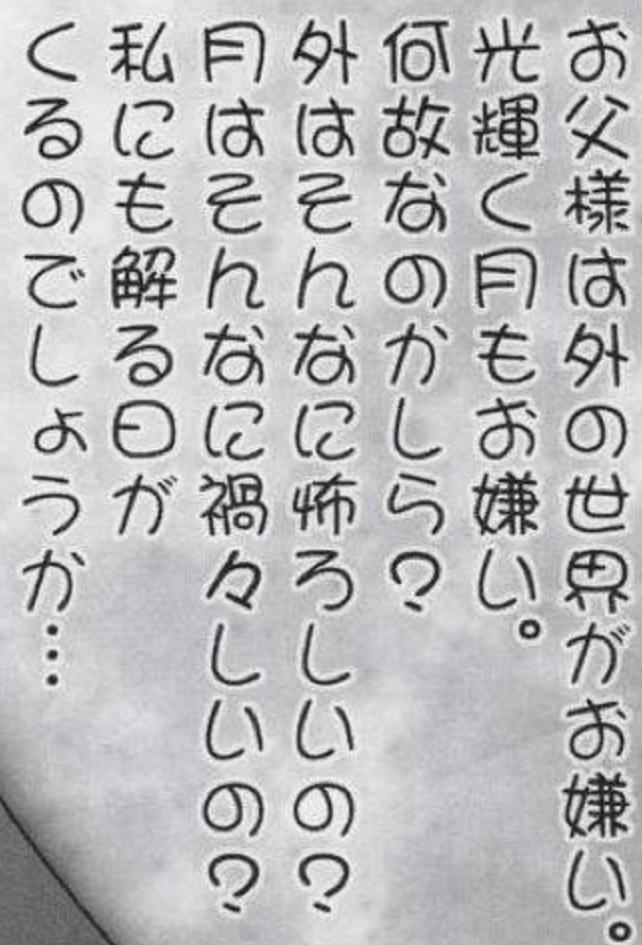 お父様は外の世界がお嫌い。
光輝く月もお嫌い。
何故なのかしら?
外はそんなに怖ろしいの?
月はそんなに禍々しいの?
私にも解る日が
くるのでしょうか…